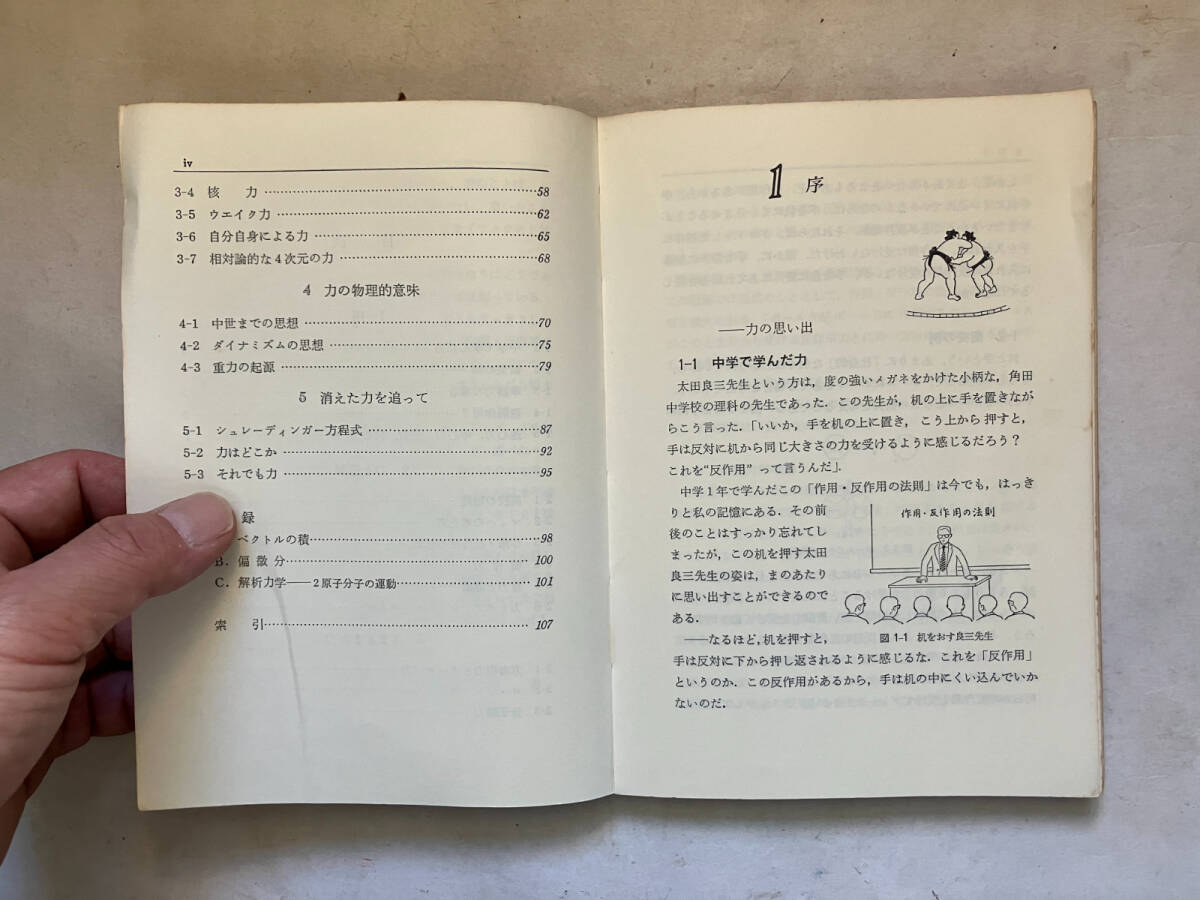 iv
3-4 核 力 58
3-5 ウエイク力 62
3-6 自分自身による力 65
3-7 相対論的な4次元の力 68
4 力の物理的意味
4-1 中世までの思想 70
4-2 ダイナミズムの思想 75
4-3 重力の起源 79
5 消えた力を追って
5-1 シュレーディンガー方程式 87
5-2 力はどこか 92
5-3 それでも力 95
録
ベクトルの積 98
B. 偏微分 100
C. 解析力学——2原子分子の運動 101
索 引 107
1 序
——力の思い出
1-1 中学で学んだ力
太田良三先生という方は，度の強いメガネをかけた小柄な，角田
中学校の理科の先生であった．この先生が，机の上に手を置きなが
らこう言った．「いいか，手を机の上に置き，こう上から押すと，
手は反対に机から同じ大きさの力を受けるように感じるだろう？
これを“反作用”って言うんだ」．
中学1年で学んだこの「作用・反作用の法則」は今でも，はっき
りと私の記憶にある．その前
後のことはすっかり忘れてし
まったが，この机を押す太田
良三先生の姿は，まのあたり
に思い出すことができるので
ある．
——なるほど，机を押すと，
手は反対に下から押し返されるように感じるな．これを「反作用」
というのか．この反作用があるから，手は机の中にくい込んでいか
ないのだ．
作用・反作用の法則
図1-1 机をおす良三先生